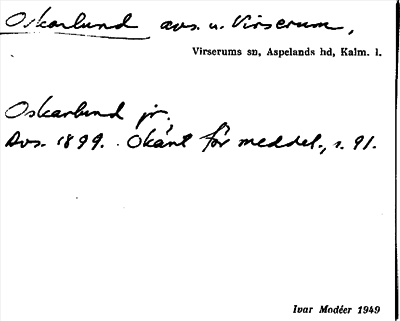 Oskarlund avs. u. Virserum,
Virserums sn, Aspelands hd, Kalm. l.
Oskarlund jr,
Avs. 1899. Okänt för meddel., s. 91.
Ivar Modéer 1949